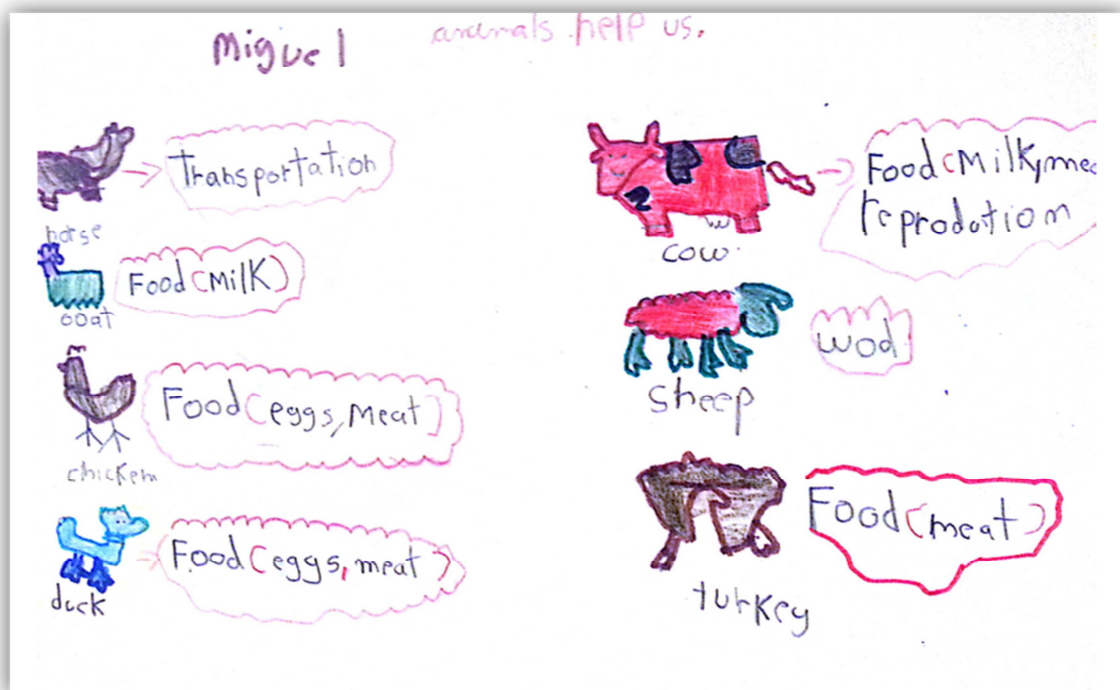 Miguel animals help us.
Transportation
horse
Food (Milk)
goat
Food (eggs, Meat)
chickem
Food (eggs, meat)
duck
Food (Milk, mea
reprodution
cow
wod
sheep
Food (meat)
turkey